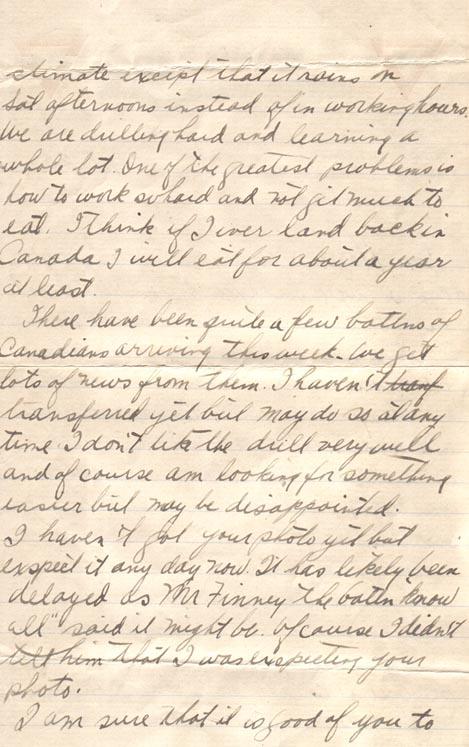 climate except that it rains on
Sat afternoons instead of in working hours.
We are drilling hard and learning a
whole lot. One of the greatest problems is
how to work so hard and not get much to
eat. I think if I ever land back in
Canada I will eat for about a year
at least.
There have been quite a few battns of
Canadians arriving this week. We get
lots of news from them. I haven't tranf
transferred yet but may do so at any
time. I don't like the drill very well
and of course am looking for something
easier but may be disappointed.
I haven't got your photo yet but
expect it any day now. It has likely been
delayed as Mr Finney the battn "know
all" said it might be. Of course I didn't
tell him that I was expecting your
photo.
I am sure that it is good of you to